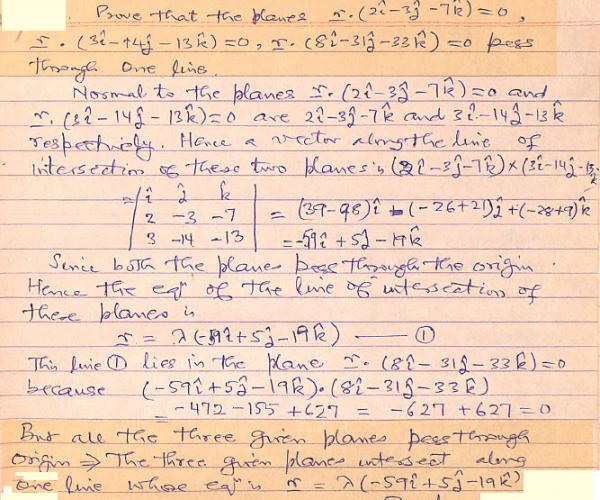 Prove that the planes r.(2î-3ĵ-7k̂)=0,
r.(3î-14ĵ-13k̂)=0, r.(8î-31ĵ-33k̂)=0 pass
through one line.
Normal to the planes r.(2î-3ĵ-7k̂)=0 and
r.(3î-14ĵ-13k̂)=0 are 2î-3ĵ-7k̂ and 3î-14ĵ-13k̂
respectively. Hence a vector along the line of
intersection of these two planes is (2î-3ĵ-7k̂)×(3î-14ĵ-13k̂
=| î ĵ k̂ |
| 2 -3 -7 | = (39-98)î-(-26+21)ĵ+(-28+9)k̂
| 3 -14 -13 | =-59î+5ĵ-19k̂
Since both the planes pass through the origin.
Hence the eqn of the line of intersection of
these planes is
r = λ(-59î+5ĵ-19k̂) — ①
This line ① lies in the plane r.(8î-31ĵ-33k̂)=0
because (-59î+5ĵ-19k̂).(8î-31ĵ-33k̂)
= -472-155+627 = -627+627=0
But all the three given planes pass through
origin ⇒ The three given planes intersect along
one line whose eqn is r = λ(-59î+5ĵ-19k̂)